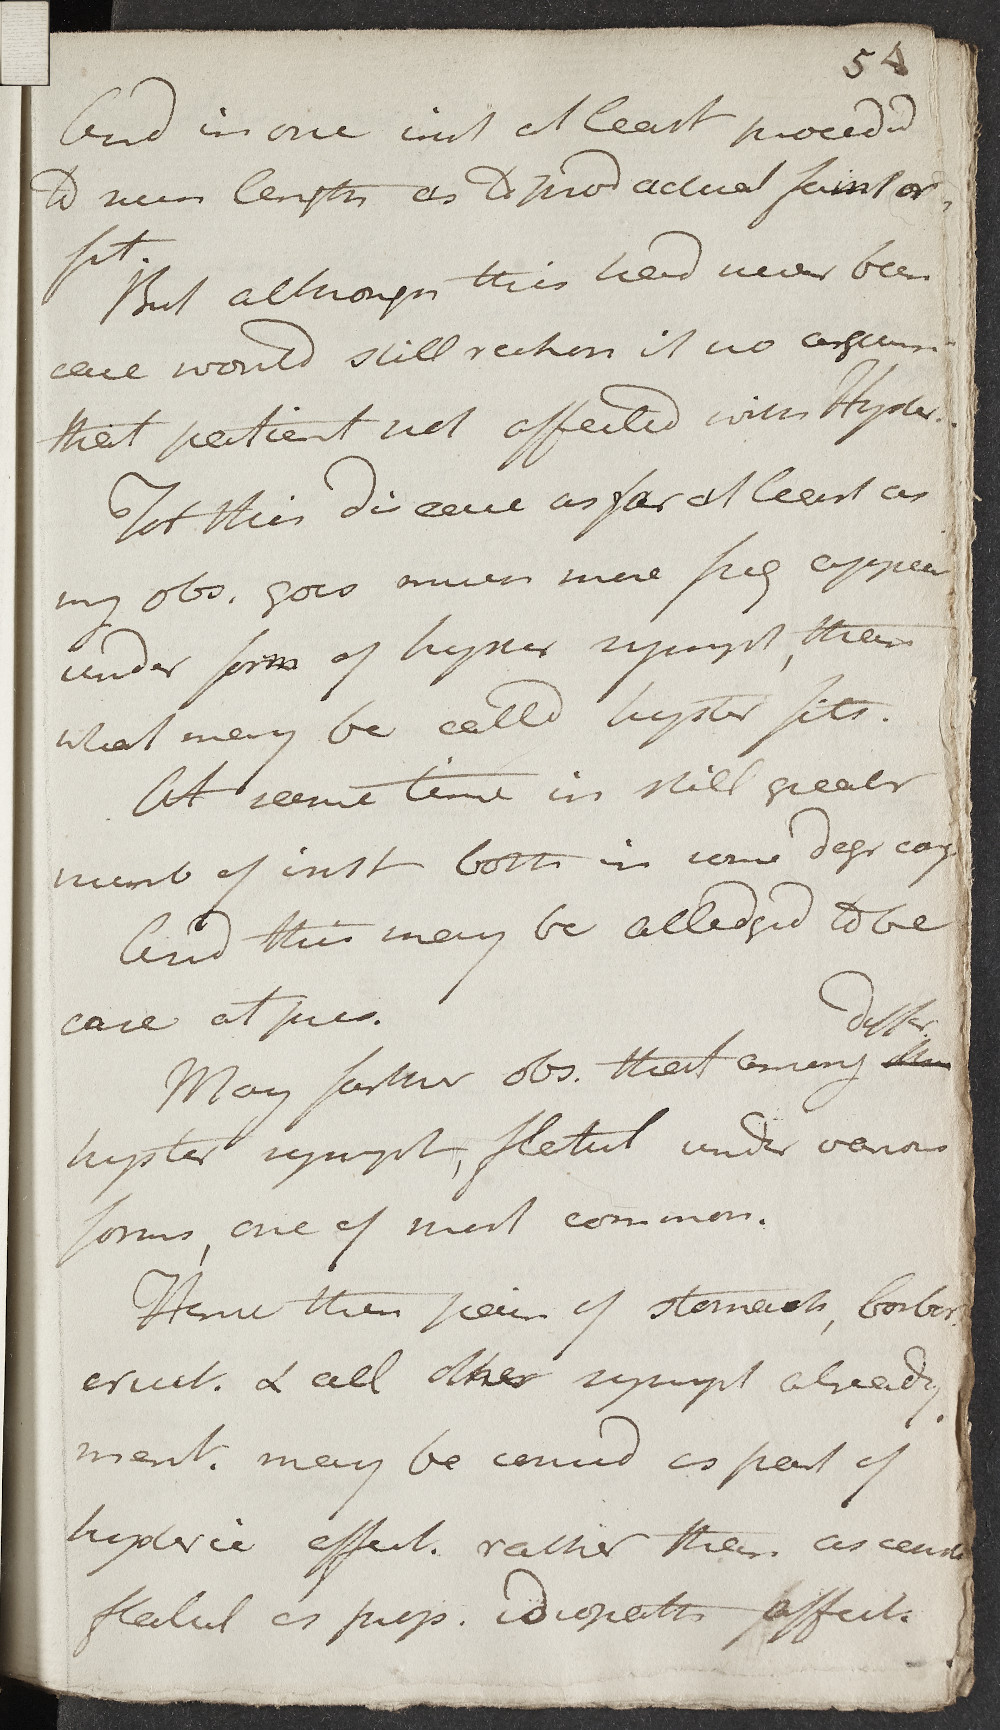 54
And in one inst at least proceedd
to such length as to prod actual faint or
fit.
But although this had never been
case would still reckon it no argum
that patient not affected with Hyster.
For this disease as far at least as
my obs. goes much more freq appear
under form of hyster sympt, than
what may be calld hyster fits.
At same time in still greater
numb of inst both in some degr conj
And this may be alledgd to be
case at pres.
differ.
May farther obs. that among
hyster sympt, flatul under various
forms, one of most common.
Hence then pain of stomach, borbor.
eruct. & all other sympt already
ment. may be consid as part of
hysteric affect. rather than as const
flatul as prop. idiopath affect.